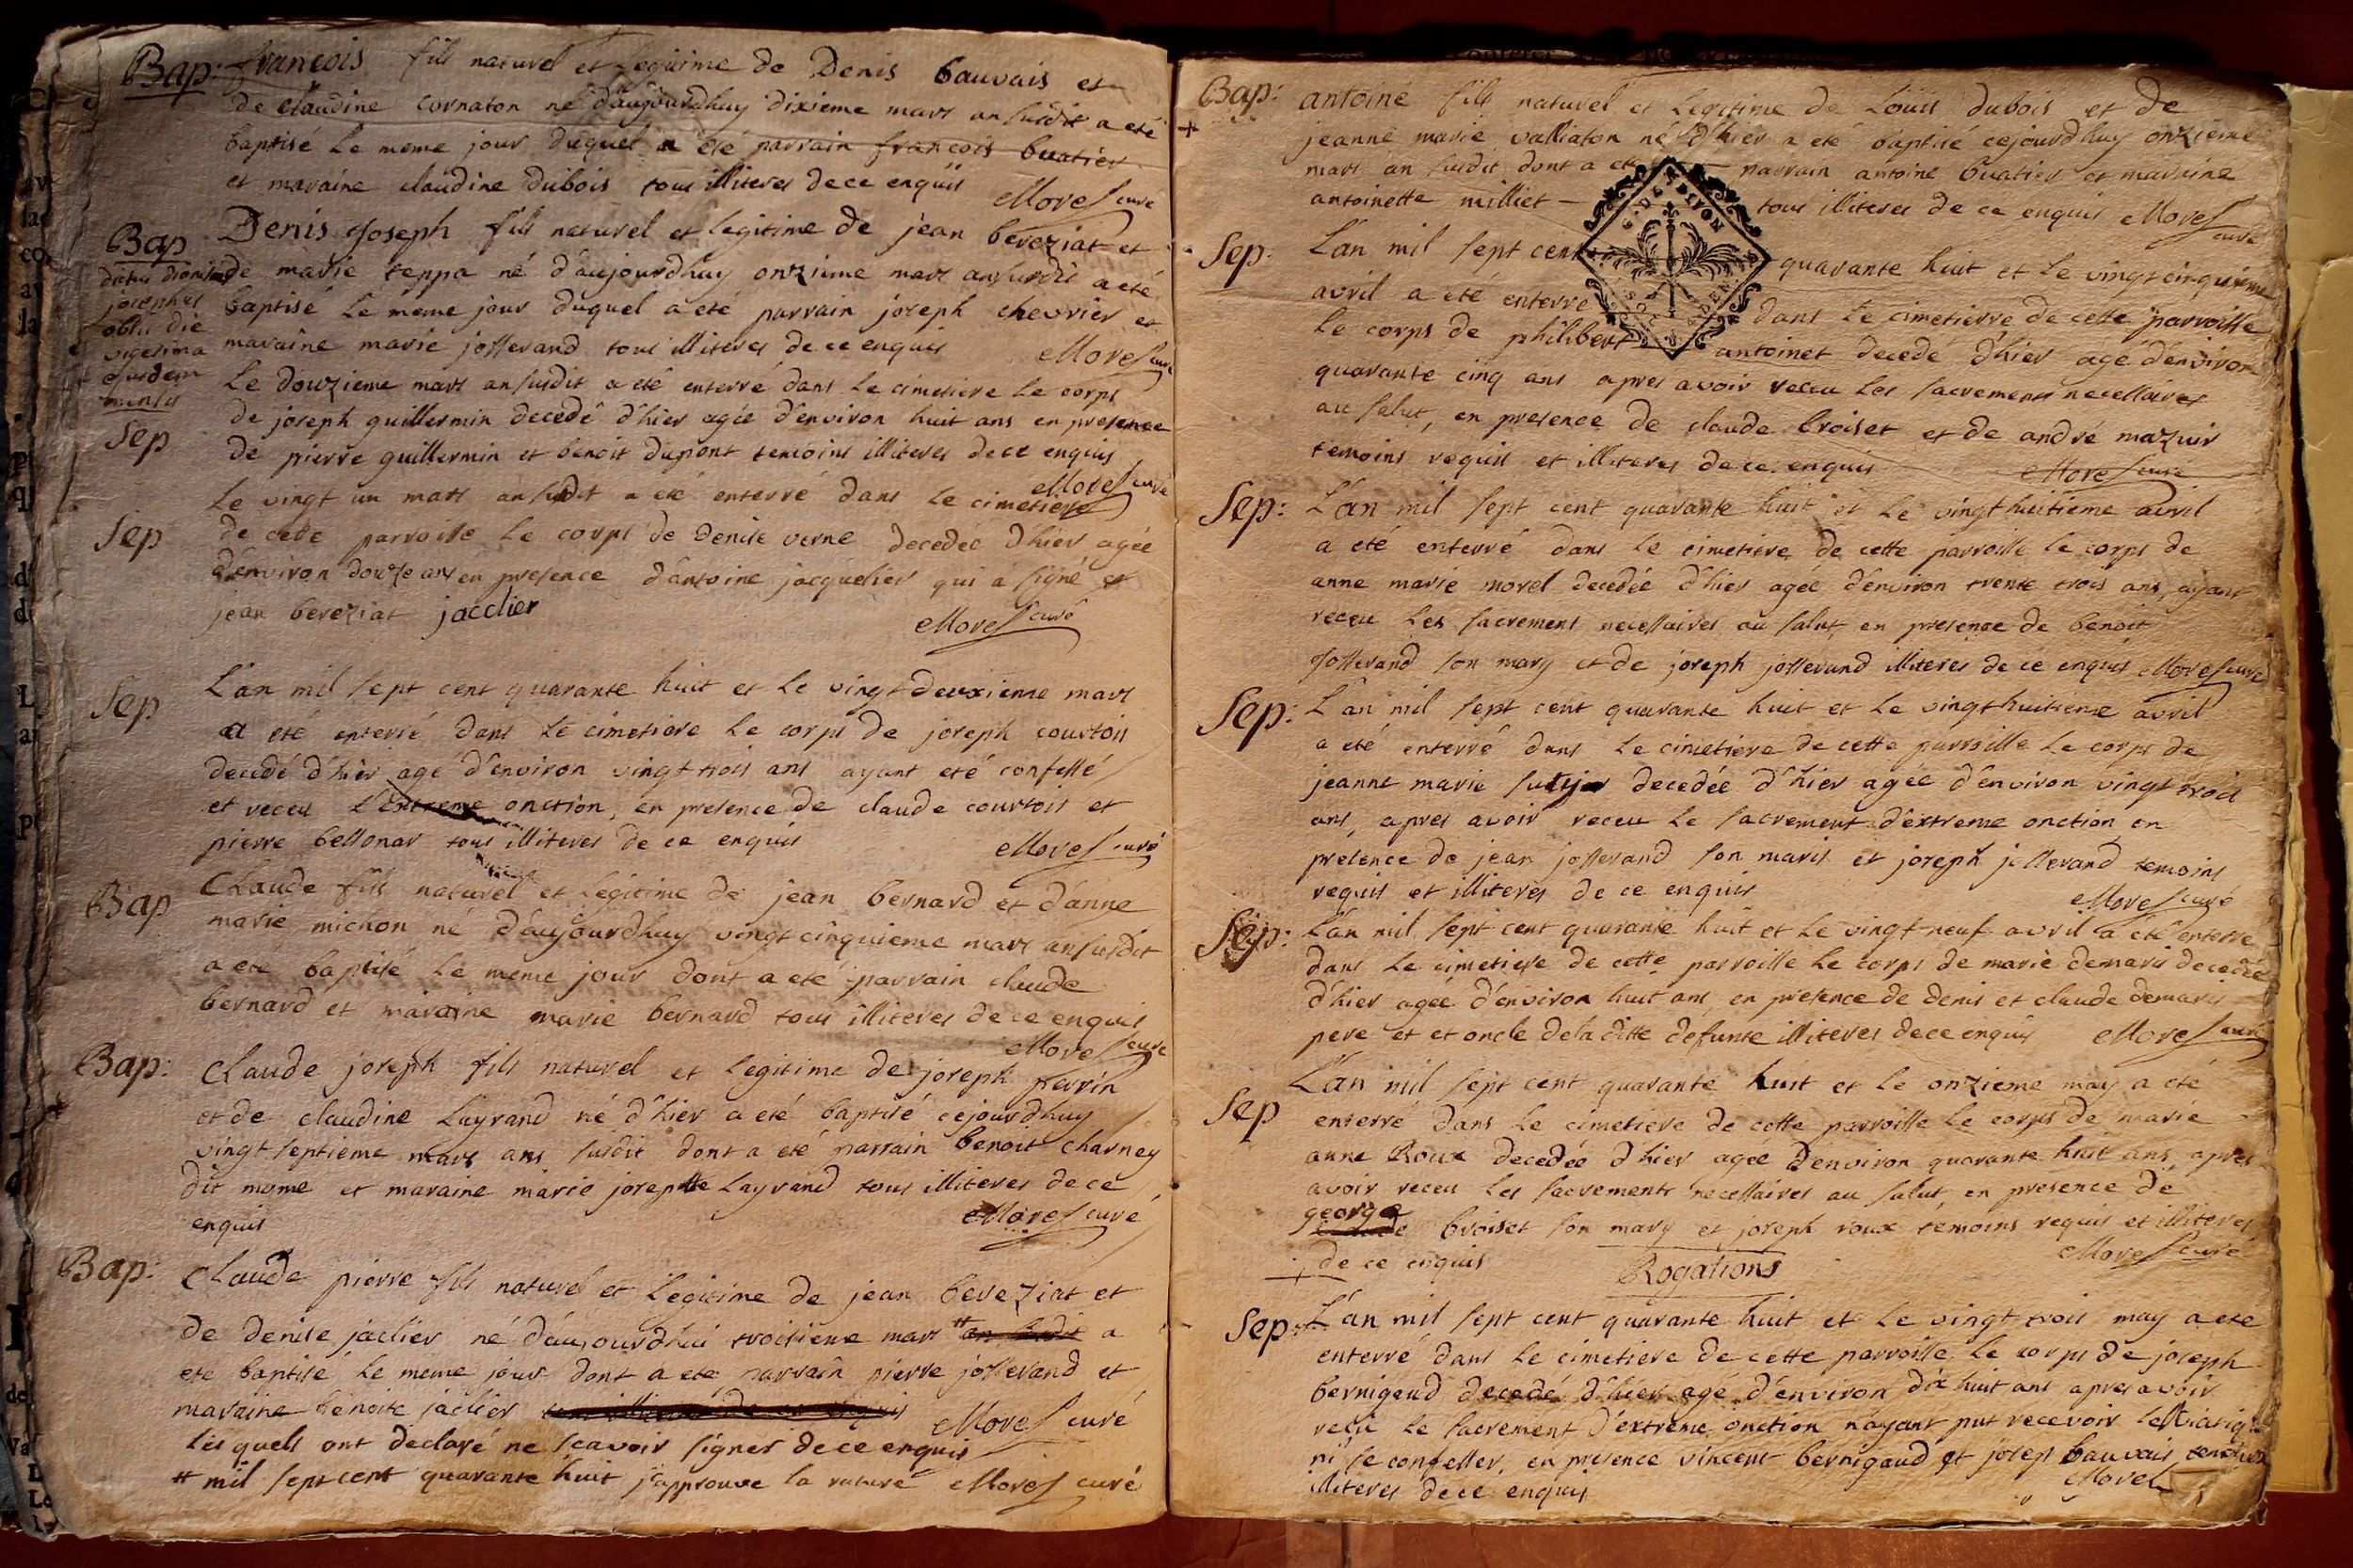 Bap: francois fils naturel et legitime de Denis bauvais et
de claudine cornaton né d'aujourdhuy dixieme mars an susdit a eté
baptisé le meme jour duquel a eté parrain francois buatier
et maraine claudine dubois tous illiteres de ce enquis Morel curé
Bap Denis joseph fils naturel et legitime de jean bereziat et
dictus dionisius
josephus
obiit die
vigesima
ejusdem
mensis
de marie teppa né d'aujourdhuy onzieme mars an susdit a eté
baptisé le meme jour duquel a eté parrain joseph chevrier et
maraine marie josserand tous illiteres de ce enquis Morel curé
Sep Le douzieme mars an susdit a eté enterré dans le cimetiere le corps
de joseph guillermin decedé d'hier agée d'environ huit ans en presence
de pierre guillermin et benoit dupont temoins illiteres de ce enquis
Morel curé
Sep Le vingt un mars an susdit a eté enterré dans le cimetiere
de cette parroisse le corps de denise verne decedée d'hier agée
d'environ douze ans en presence d'antoine jacquelier qui a signé et
jean bereziat jacclier Morel curé
Sep L'an mil sept cent quarante huit et le vingt deuxieme mars
a eté enterré dans le cimetiere le corps de joseph courtois
decedé d'hier agé d'environ vingt trois ans ayant eté confessé
et receu l'extreme onction, en presence de claude courtois et
pierre bellonar tous illiteres de ce enquis Morel curé
Bap Claude fils naturel et legitime de jean bernard et d'anne
marie michon né d'aujourdhuy vingt cinquieme mars an susdit
a eté baptisé le meme jour dont a eté parrain claude
bernard et maraine marie bernard tous illiteres de ce enquis
Morel curé
Bap: Claude joseph fils naturel et legitime de joseph perrin
et de claudine Layrand né d'hier a eté baptisé cejourdhuy
vingt septieme mars ans susdit dont a eté parrain benoit charney
dit mome et maraine marie josephte Layrand tous illiteres de ce
enquis Morel curé
Bap: Claude pierre fils naturel et legitime de jean bereziat et
de denise jaclier né d'aujourdhui troisieme mars # an susdit a
ete baptisé le meme jour dont a ete parrain pierre josserand et
maraine benoite jaclier tous illiteres de ce enquis Morel curé
les quels ont declaré ne scavoir signer de ce enquis
# mil sept cent quarante huit j'approuve la rature Morel curé
Bap: antoine fils naturel et legitime de Loüis dubois et de
+ jeanne marie valliaton né d'hier a eté baptisé cejourdhuy onzieme
mars an susdit dont a eté parrain antoine buatier et maraine
antoinette milliet tous illiteres de ce enquis Morel curé
Sep. L'an mil sept cent quarante huit et le vingt cinquieme
avril a eté enterré dans le cimetierre de cette parroisse
le corps de philibert antoinet decedé d'hier agé d'environ
quarante cinq ans apres avoir receu les sacrements necessaires
au salut, en presence de claude broiset et de andré mazuir
temoins requis et illiteres de ce enquis Morel curé
Sep: L'an mil sept cent quarante huit et le vingt huitieme avril
a eté enterré dans le cimetiere de cette parroisse le corps de
anne marie morel decedée d'hier agée d'environ trente trois ans, ayant
receu les sacrements necessaires au salut, en presence de benoit
josserand son mary et de joseph josserand illiteres de ce enquis Morel curé
Sep: L'an mil sept cent quarante huit et le vingt huitieme avril
a eté enterré dans le cimetiere de cette parroisse le corps de
jeanne marie decedée d'hier agée d'environ vingt trois
ans, apres avoir receu le sacrement d'extreme onction en
presence de jean josserand son maris et joseph josserand temoins
requis et illiteres de ce enquis Morel curé
Sep: L'an mil sept cent quarante huit et le vingt neuf avril a été enterré
dans le cimetiere de cette parroisse le corps de marie demaris decedée
d'hier agée d'environ huit ans, en presence de denis et claude demaris
pere et et oncle de la ditte defunte illiteres de ce enquis Morel curé
Sep L'an mil sept cent quarante huit et le onzieme may a eté
enterré dans le cimetiere de cette parroisse le corps de marie
anne Roux decedée d'hier agée d'environ quarante huit ans, apres
avoir receu les sacrements necessaires au salut en presence de
george
claude broiset son mary et joseph roux temoins requis et illiteres
de ce enquis Morel curé
Rogations
Sep: L'an mil sept cent quarante huit et le vingt trois may a eté
enterré dans le cimetiere de cette parroisse le corps de joseph
bernigaud decedé d'hier agé d'environ dix huit ans apres avoir
reçu le sacrement d'extreme onction n'ayant put recevoir le viatique
ni se confesser, en presence vincent bernigaud et josep bauvais temoins
illiteres de ce enquis Morel